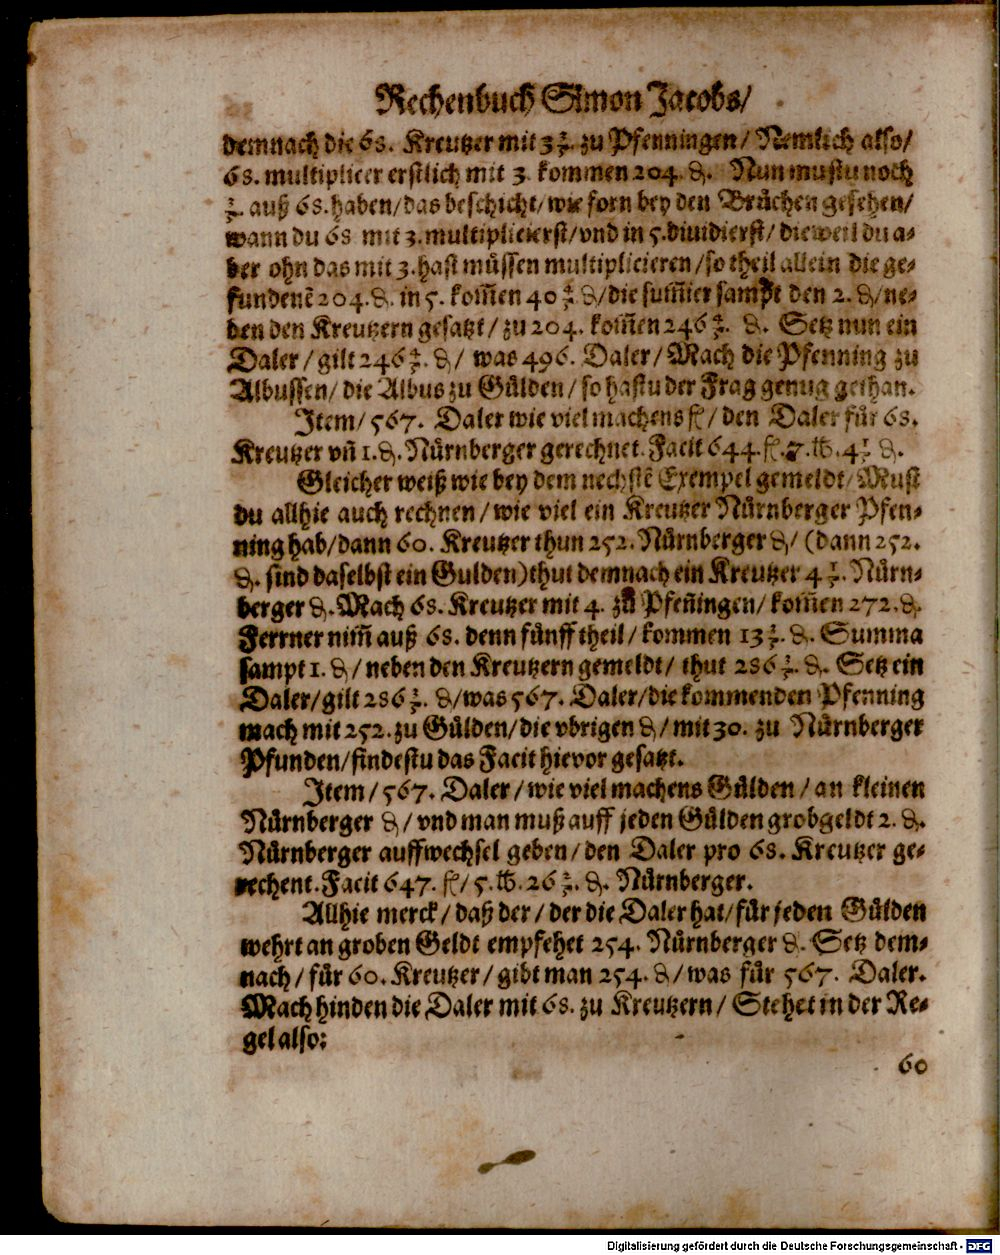 Rechenbuch Simon Jacobs/
demnach die 68. Kreutzer mit 3 3/5. zu Pfenningen/ Nemlich also/
68. multiplicer erstlich mit 3. kommen 204. ₰. Nun mustu noch
3/5. auß 68. haben/ das beschicht/ wie forn bey den Brüchen gesehen/
wann du 68 mit 3. multiplicierst/ vnd in 5. diuidierst/ dieweil du a⸗
ber ohn das mit 3. hast müssen multiplicieren/ so theil allein die ge⸗
fundenẽ 204. ₰. in 5. kom̃en 40 4/5 ₰/ die sum̃ier sampt den 2. ₰/ ne⸗
ben den Kreutzern gesatzt/ zu 204. kom̃en 246 4/5. ₰. Setz nun ein
Daler/ gilt 246 4/5. ₰/ was 496. Daler/ Mach die Pfenning zu
Albussen/ die Albus zu Gülden/ so hastu der Frag genug gethan.
Item/ 567. Daler wie viel machens fl/ den Daler für 68.
Kreutzer vñ 1. ₰. Nürnberger gerechnet. Facit 644. fl. 7. ℔. 4 1/5 ₰.
Gleicher weiß wie bey dem nechstẽ Exempel gemeldt/ Must
du allhie auch rechnen/ wie viel ein Kreutzer Nürnberger Pfen⸗
ning hab/ dann 60. Kreutzer thun 252. Nürnberger ₰/ (dann 252.
₰. sind daselbst ein Gulden) thut demnach ein Kreutzer 4 1/5. Nürn⸗
berger ₰. Mach 68. Kreutzer mit 4. zu Pfeñingen/ kom̃en 272. ₰.
Ferrner nim̃ auß 68. denn fünff theil/ kommen 13 3/5. ₰. Summa
sampt 1. ₰/ neben den Kreutzern gemeldt/ thut 286 3/5. ₰. Setz ein
Daler/ gilt 286 3/5. ₰/ was 567. Daler/ die kommenden Pfenning
mach mit 252. zu Gülden/ die vbrigen ₰/ mit 30. zu Nürnberger
Pfunden/ findestu das Facit hievor gesatzt.
Item/ 567. Daler/ wie viel machens Gülden/ an kleinen
Nürnberger ₰/ vnd man muß auff jeden Gülden grobgeldt 2. ₰.
Nürnberger auffwechsel geben/ den Daler pro 68. Kreutzer ge⸗
rechent. Facit 647. fl/ 5. ℔. 26 2/5. ₰. Nürnberger.
Allhie merck/ daß der/ der die Daler hat/ für jeden Gülden
wehrt an groben Geldt empfehet 254. Nürnberger ₰. Setz dem⸗
nach/ für 60. Kreutzer/ gibt man 254. ₰/ was für 567. Daler.
Mach hinden die Daler mit 68. zu Kreutzern/ Stehet in der Re⸗
gel also:
60
Digitalisierung gefördert durch die Deutsche Forschungsgemeinschaft - DFG